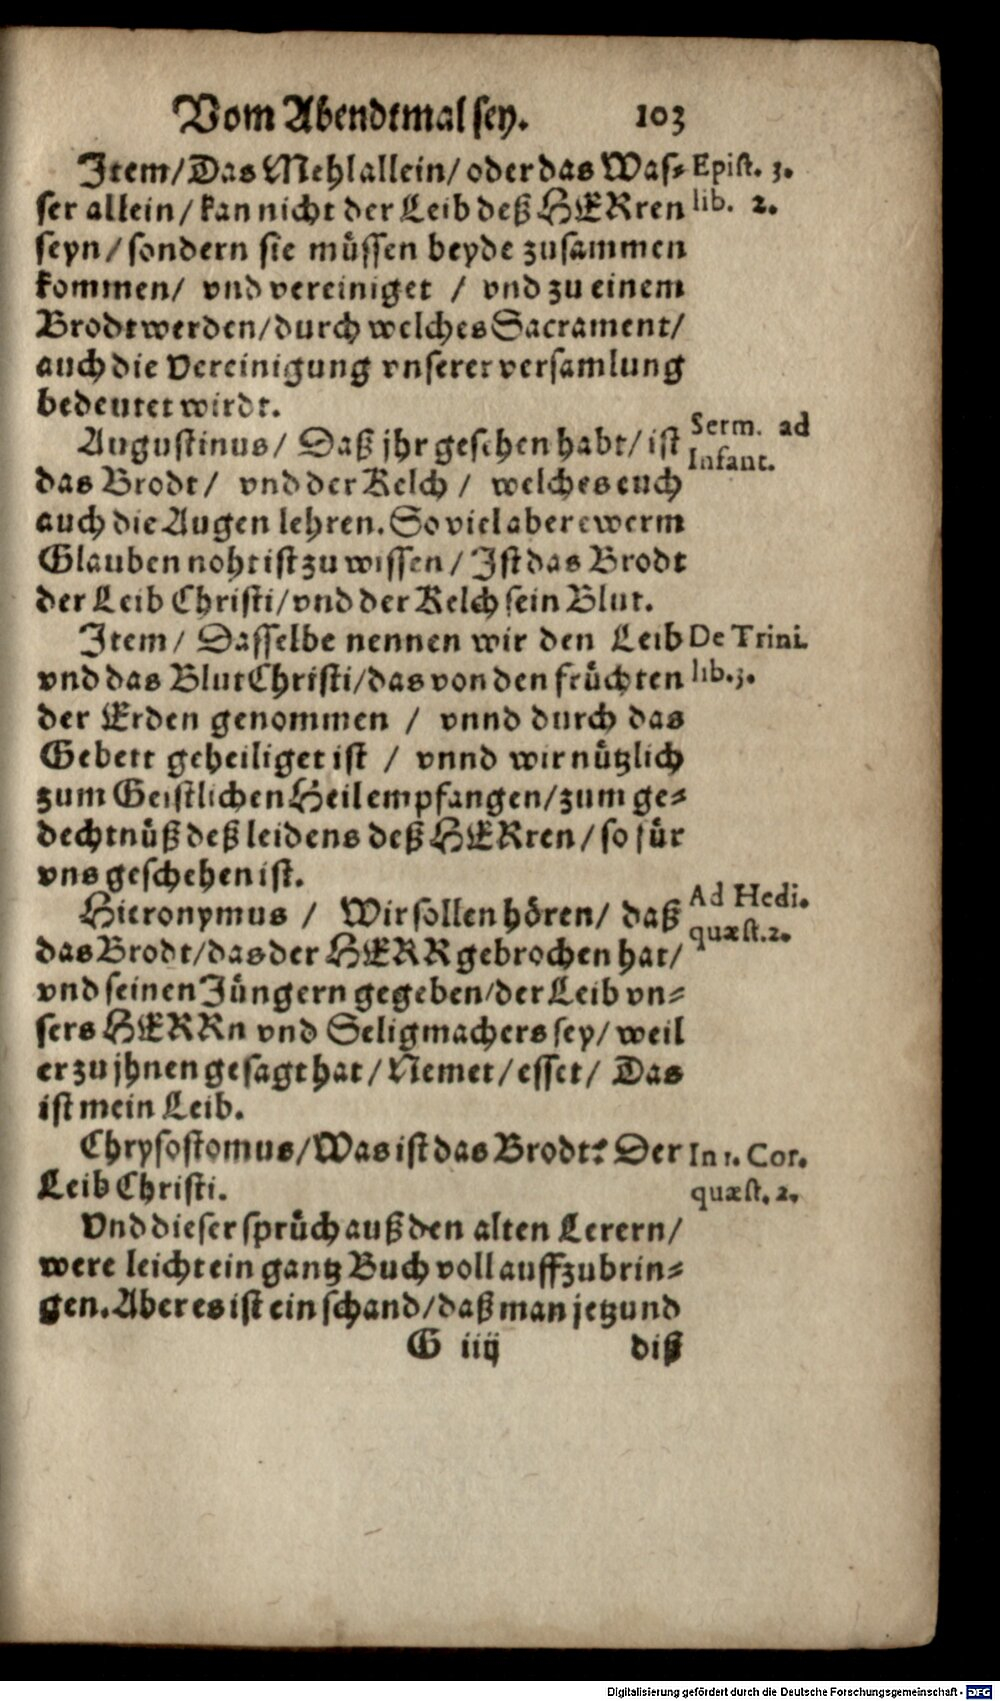 Vom Abendtmal sey. 103
Item/ Das Mehl allein/ oder das Was⸗ Epist. 3.
ser allein/ kan nicht der Leib deß HERren lib. 2.
seyn/ sondern sie muͤssen beyde zusammen
kommen/ vnd vereiniget / vnd zu einem
Brodt werden/ durch welches Sacrament/
auch die Vereinigung vnserer versamlung
bedeutet wirdt.
Augustinus/ Daß jhr gesehen habt/ ist Serm. ad
das Brodt/ vnd der Kelch / welches euch Infant.
auch die Augen lehren. So viel aber ewerm
Glauben noht ist zu wissen/ Ist das Brodt
der Leib Christi/ vnd der Kelch sein Blut.
Item/ Dasselbe nennen wir den Leib De Trini.
vnd das Blut Christi/ das von den fruͤchten lib. 3.
der Erden genommen / vnnd durch das
Gebett geheiliget ist / vnnd wir nuͤtzlich
zum Geistlichen Heil empfangen/ zum ge⸗
dechtnuͤß deß leidens deß HERren/ so fuͤr
vns geschehen ist.
Hieronymus / Wir sollen hoͤren/ daß Ad Hedi.
das Brodt/ das der HERR gebrochen hat/ quæst. 2.
vnd seinen Juͤngern gegeben/ der Leib vn⸗
sers HERRn vnd Seligmachers sey/ weil
er zu jhnen gesagt hat/ Nemet/ esset/ Das
ist mein Leib.
Chrysostomus/ Was ist das Brodt? Der In 1. Cor.
Leib Christi. quæst. 2.
Vnd dieser spruͤch auß den alten Lerern/
were leicht ein gantz Buch voll auffzubrin⸗
gen. Aber es ist ein schand/ daß man jetzund
G iiij diß
Digitalisierung gefördert durch die Deutsche Forschungsgemeinschaft - DFG